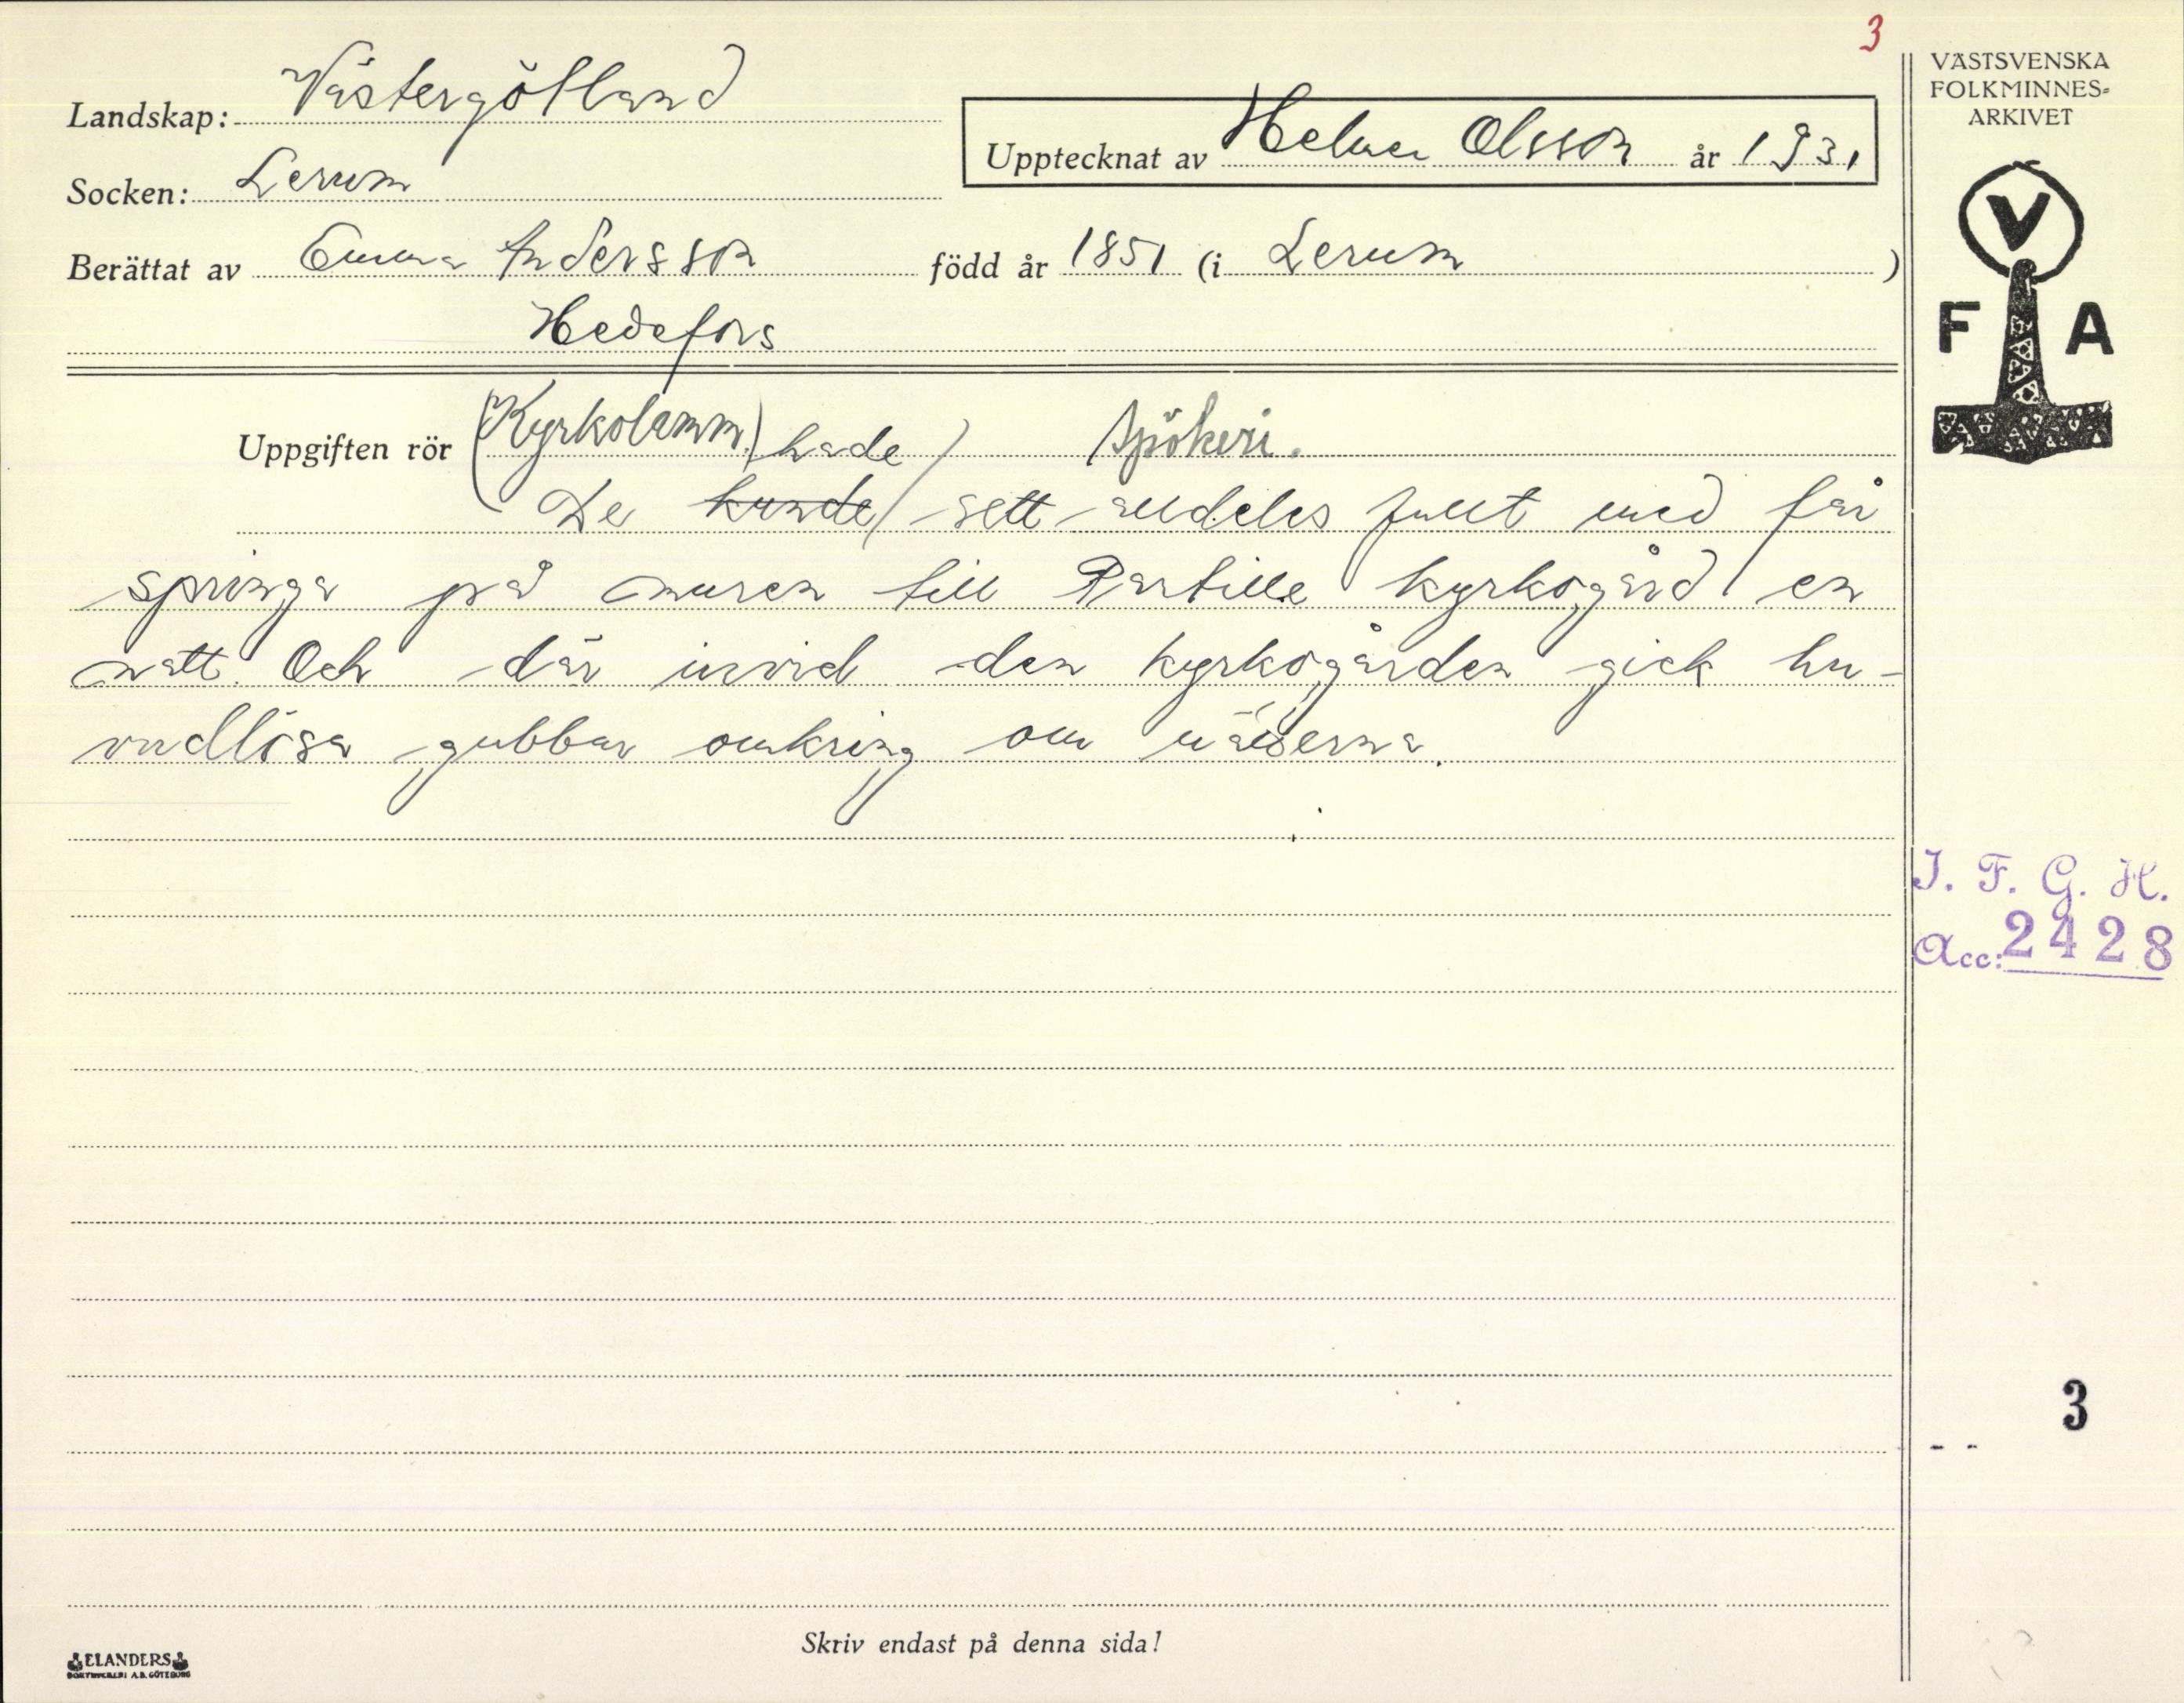 3
VÄSTSVENSKA
FOLKMINNES-
ARKIVET
Landskap: Västergötland
Upptecknat av Helmer Olsson år 1931
Socken: Lerum
Berättat av Emma Andersson född år 1851 (i Lerum )
Hedefors
V
F A
Uppgiften rör (Kyrkolamm.) Spökeri.
hade
De kunde sett alldeles fullt med får
springa på muren till Partille kyrkogård en
natt. Och där invid den kyrkogården gick hu-
vudlösa gubbar omkring om nätterna.
I. F. G. H.
Acc: 2428
3
Skriv endast på denna sida!
ELANDERS
BOKTRYCKERI A.B. GÖTEBORG